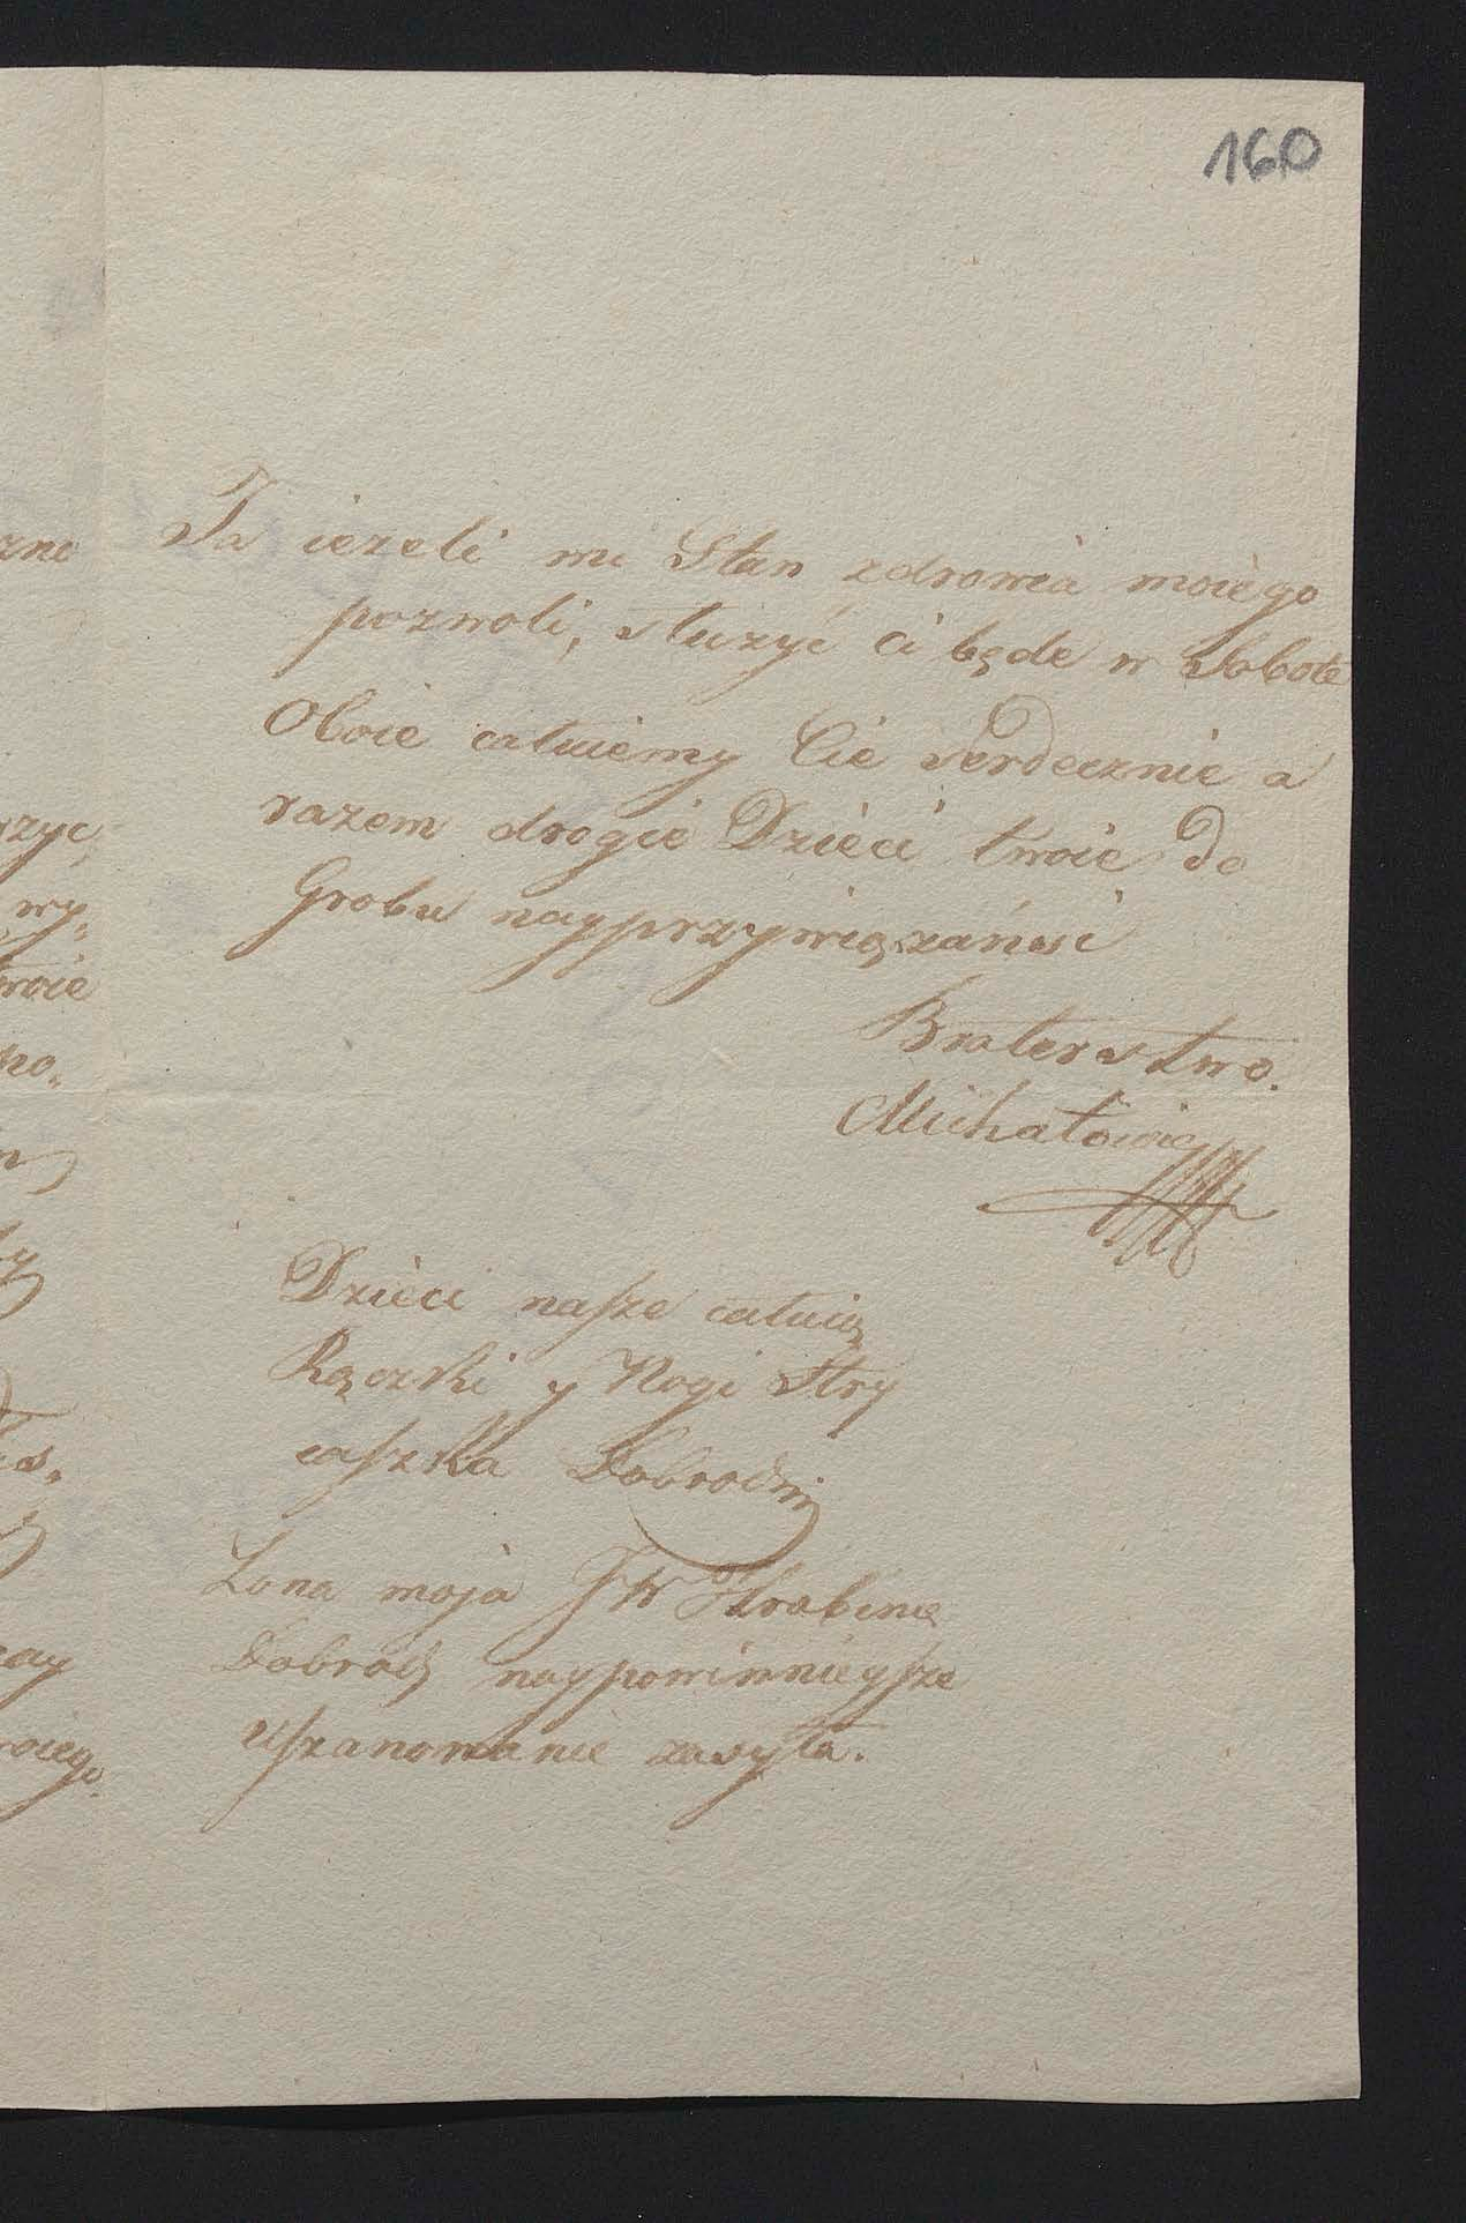 160
Ja ieżeli mi Stan zdrowia moiego
pozwoli, służyć Ci będe w Sobote
Oboie całuiemy Cie serdecznie a
razem drogie Dzieci twoie do
Grobu nayprzywiązańsi
Braterstwo.
Michałowie
Dzieci nasze całuią
Rączki y Nogi Stry
iaszka Dobrodzi
Zona moja JW Hrabinie
Dobrodz naypowinnieysze
Uszanowanie zasyła.
zne
rzyc
wy,
woie
no,
ay
woiego.